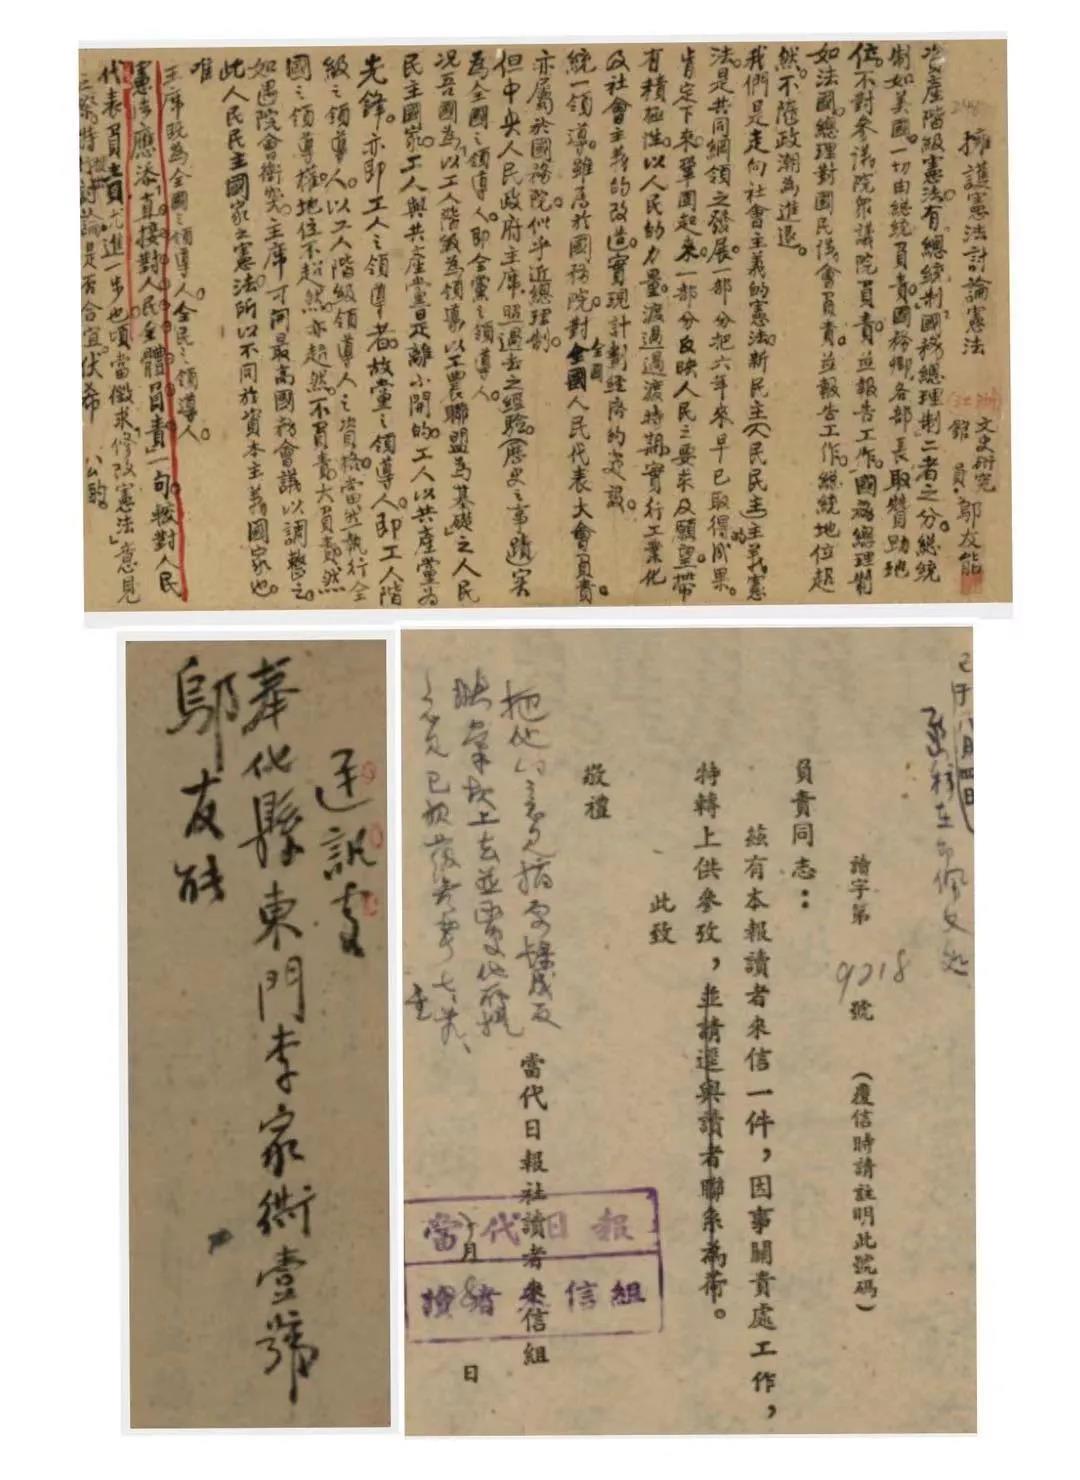 擁護憲法討論憲法
浙江文史研究館員 鄔友能
資產階級憲法有「總統制」「國務總理制」二者之分。總統
制如美國。一切由總統負責。國務卿、各部長取贊助地
位。不對參議院衆議院負責。並報告工作。國務總理制
如法國。總理對國民議會負責。並報告工作。總統地位超
然。不隨政潮為進退。
我們是走向社會主義的憲法。新民主(人民民主)主義憲
法。是共同綱領之發展。一部分把六年來早已取得的成果。
肯定下來。鞏固起來。一部分反映人民之要求及願望。帶
有積極性。以人民的力量。渡過過渡時期。實行工業化
及社會主義的改造。實現計劃經濟的建設。
統一領導。雖屬於國務院。對全國人民代表大會負責。
全國
亦屬於國務院。似乎近總理制。
但中央人民政府主席。照過去之經驗。歷史之事蹟。實
為全國之領導人。即全黨之領導人。
況吾國為「以工人階級為領導。以工農聯盟為基礎」之人民
民主國家。工人與共產黨是離不開的。工人以共產黨為
先鋒。亦即工人之領導者。故黨之領導人。即工人階
級之領導人。以工人階級領導人之資格。當然執行全
國之領導權。地位不超然。亦超然。不負責。大負責。然
如遇院會衝突。主席可開最高國務會議以調整之。
此人民民主國家之憲法。所以不同於資本主義國家也。
唯
主席既為全國之領導人。全民之領導人。
憲法應添「直接對人民全體負責」一句。較對人民
代表負責。尤進一步也。頃當徵求「修改憲法」意見
之際。特提討論。是否合宜。伏希 公酌。
通訊處
奉化縣東門李家衖壹號
鄔友能
讀字第 9218 號 (覆信時請註明此號碼)
負責同志:
茲有本報讀者來信一件,因事關貴處工作,
特轉上供參攷,並請逕與讀者聯系為荷。
此致
敬禮
當代日報社讀者來信組
月 8 日
當代日報
讀者來信組